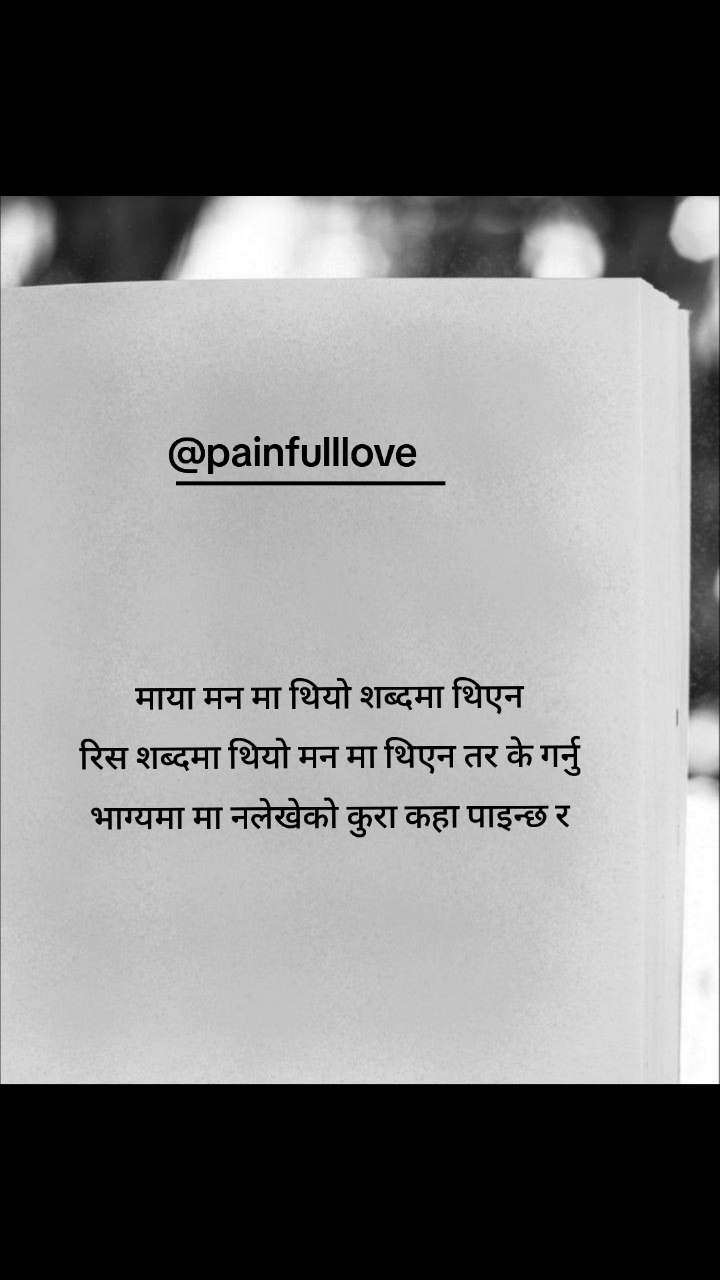 @painfulllove
माया मन मा थियो शब्दमा थिएन
रिस शब्दमा थियो मन मा थिएन तर के गर्नु
भाग्यमा मा नलेखेको कुरा कहा पाइन्छ र